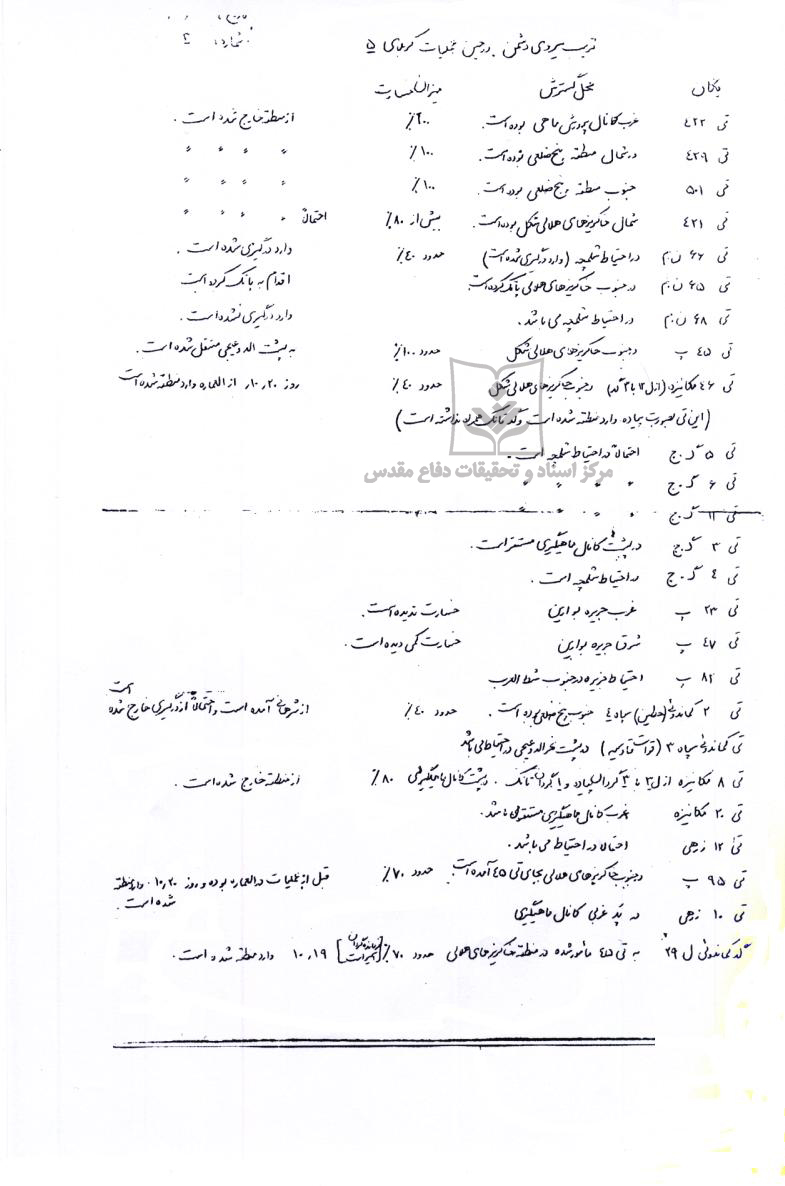 شماره ۲
ترتیب نیروی دشمن در حین عملیات کربلای ۵
یگان محل گسترش میزان خسارت
تی ۴۲۲ غرب کانال پرورش ماهی بوده است. ۲۰۰٪ از منطقه خارج شده است.
تی ۴۲۹ در شمال منطقه پنج ضلعی بوده است. ۱۰۰٪ " " " "
تی ۵۰۱ جنوب منطقه پنج ضلعی بوده است. ۱۰۰٪ " " " "
تی ۴۲۱ شمال خاکریزهای هلالی شکل بوده است. بیش از ۸۰٪ احتمالاً " " " "
تی ۶۶ ن.م در احتیاط شلمچه (وارد درگیری شده است) حدود ۴۰٪ وارد درگیری شده است.
تی ۶۵ ن.م در جنوب خاکریزهای هلالی پاتک کرده است. اقدام به پاتک کرده است
تی ۶۸ ن.م در احتیاط شلمچه می باشد. وارد درگیری نشده است.
تی ۴۵ پ در جنوب خاکریزهای هلالی شکل حدود ۱۰۰٪ به پشت الدوعیجی منتقل شده است.
تی ۴۶ مکانیزه (از ل ۱۲ با ۳ گد) در جنوب خاکریزهای هلالی شکل حدود ۴۰٪ روز ۱۰,۲۰ از العماره وارد منطقه شده است
(این تی بصورت پیاده وارد منطقه شده است و گد تانک همراه نداشته است)
تی ۵ گ.ج احتمالاً در احتیاط شلمچه است.
مرکز اسناد و تحقیقات دفاع مقدس
تی ۶ گ.ج " " " "
تی ۱۱ گ.ج " " " "
تی ۳ گ.ج در پشت کانال ماهیگیری مستقر است.
تی ۴ گ.ج در احتیاط شلمچه است.
تی ۲۳ پ غرب جزیره بوارین خسارت ندیده است.
تی ۴۷ پ شرق جزیره بوارین خسارت کمی دیده است.
تی ۸۲ پ احتیاط جزیره در جنوب شط العرب
تی ۲ کماندوئی (حطین) سپاه ۴ جنوب پنج ضلعی بوده است. حدود ۴۰٪ از شرهانی آمده است و احتمالاً از درگیری خارج شده است
تی کماندوئی سپاه ۳ در پشت نهر الدوعیجی در احتیاط می باشد
تی ۸ مکانیزه از ل ۳ با ۳ گردان پیاده و ۱ گردان تانک. در پشت کانال ماهیگیری ۸۰٪ از منطقه خارج شده است.
تی ۲۰ مکانیزه غرب کانال ماهیگیری مستقر می باشد.
تی ۱۲ زرهی احتمالا در احتیاط می باشد.
تی ۹۵ پ در جنوب خاکریزهای هلالی بجای تی ۴۵ آمده است. حدود ۷۰٪ قبل از عملیات در العماره بوده و روز ۱۰,۲۰ وارد منطقه شده است.
تی ۱۰ زرهی در پد غربی کانال ماهیگیری
گد کماندوئی ل ۲۹ به تی ۴۵ مامور شده در منطقه خاکریزهای هلالی حدود ۷۰٪ [فرمانده گردان اسیر است] ۱۰,۱۹ وارد منطقه شده است.